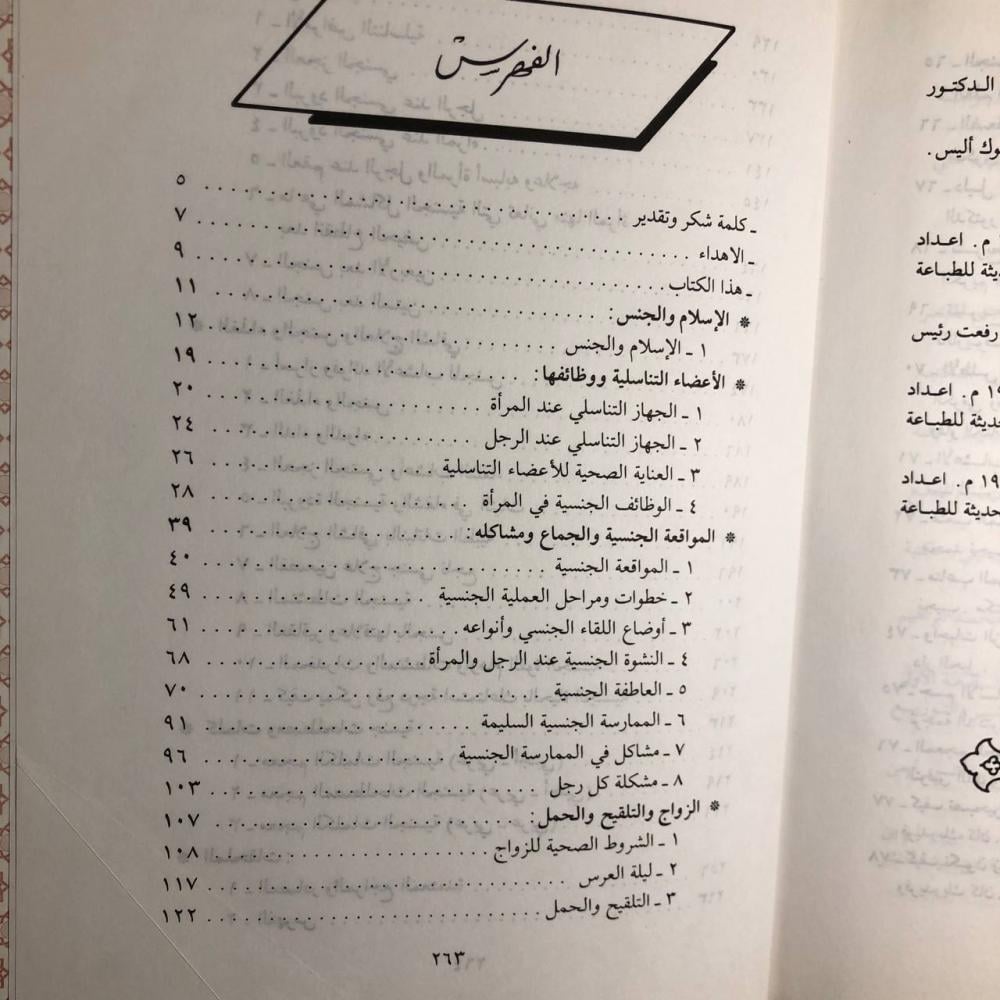 الفهرس
ـ كلمة شكر وتقدير . . . . . . . . . . ٥
ـ الاهداء . . . . . . . . . . ٧
ـ هذا الكتاب . . . . . . . . . . ٩
* الإسلام والجنس: . . . . . . . . . . ١١
١ ـ الإسلام والجنس . . . . . . . . . . ١٢
* الأعضاء التناسلية ووظائفها: . . . . . . . . . . ١٩
١ ـ الجهاز التناسلي عند المرأة . . . . . . . . . . ٢٠
٢ ـ الجهاز التناسلي عند الرجل . . . . . . . . . . ٢٤
٣ ـ العناية الصحية للأعضاء التناسلية . . . . . . . . . . ٢٦
٤ ـ الوظائف الجنسية في المرأة . . . . . . . . . . ٢٨
* المواقعة الجنسية والجماع ومشاكله: . . . . . . . . . . ٣٩
١ ـ المواقعة الجنسية . . . . . . . . . . ٤٠
٢ ـ خطوات ومراحل العملية الجنسية . . . . . . . . . . ٤٩
٣ ـ أوضاع اللقاء الجنسي وأنواعه . . . . . . . . . . ٦١
٤ ـ النشوة الجنسية عند الرجل والمرأة . . . . . . . . . . ٦٨
٥ ـ العاطفة الجنسية . . . . . . . . . . ٧٠
٦ ـ الممارسة الجنسية السليمة . . . . . . . . . . ٩١
٧ ـ مشاكل في الممارسة الجنسية . . . . . . . . . . ٩٦
٨ ـ مشكلة كل رجل . . . . . . . . . . ١٠٣
* الزواج والتلقيح والحمل: . . . . . . . . . . ١٠٧
١ ـ الشروط الصحية للزواج . . . . . . . . . . ١٠٨
٢ ـ ليلة العرس . . . . . . . . . . ١١٧
٣ ـ التلقيح والحمل . . . . . . . . . . ١٢٢
٢٦٣
الـدكتـور
أليس.
م. اعـداد
للطبـاعة
رفعت رئيس
م. اعـداد
للطبـاعة
م. اعـداد
للطبـاعة